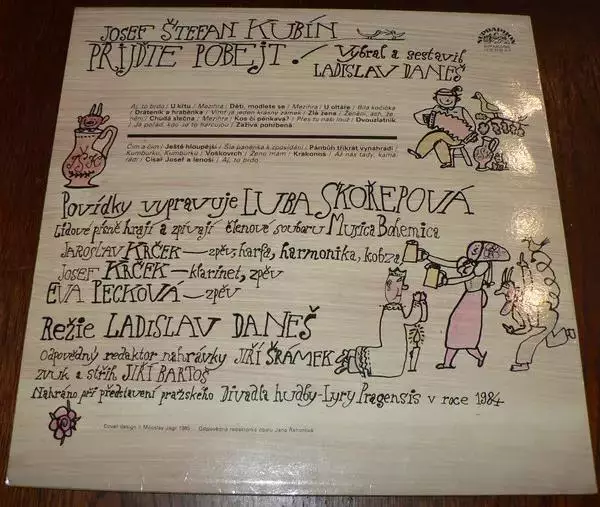 JOSEF ŠTEFAN KUBÍN
PŘIJĎTE POBEJT!
Vybral a sestavil
LADISLAV DANEŠ
SUPRAPHON
Aj, to brdo / U kitu / Mezihra / Děti, modlete se / Mezihra / U oltáře / Bila kočička
/ Dráteník a hraběnka / Vímť já jeden krásny zámek / Zlá žena / Ženění, ach, že-
nění / Chudá slečna / Mezihra / Kos či pěnkava? / Přes tu naši louž / Dvouzlatník
/ Já pořád, kdo to tu harcoujou / Zaživa pohřbená
Čim a čim / Ještě hloupější / Šla panenka k zpovídání / Pánbůh třikrát vynahradí /
Kumburku, Kumburku / Voskovech / Ženo mám / Krakonš / Až nás tady, kama-
rádi / Císař Josef a lenoši / Aj, to brdo
Povídky vypravuje LUBA SKOŘEPOVÁ
Lidové písně hrají a zpívají členové souboru Musica Bohemica
JAROSLAV KRČEK — zpěv, harfa, harmonika, kobza
JOSEF KRČEK — klarinet, zpěv
EVA PECKOVÁ — zpěv
Režie LADISLAV DANEŠ
Odpovědný redaktor nahrávky JIŘÍ ŠRÁMEK
zvuk a střih JIŘÍ BARTOŠ
Nahráno při představení pražského Divadla hudby-Lyry Pragensis v roce 1984
Cover design © Miloslav Jágr 1985 Odpovědná redaktorka obalu Jana